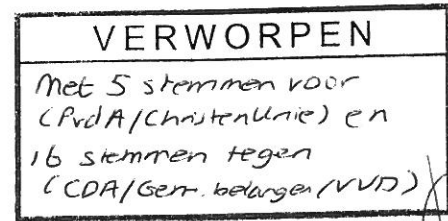 VERWORPEN
Met 5 stemmen voor
(PvdA/ChristenUnie) en
16 stemmen tegen
(CDA/Gem. belangen/VVD)